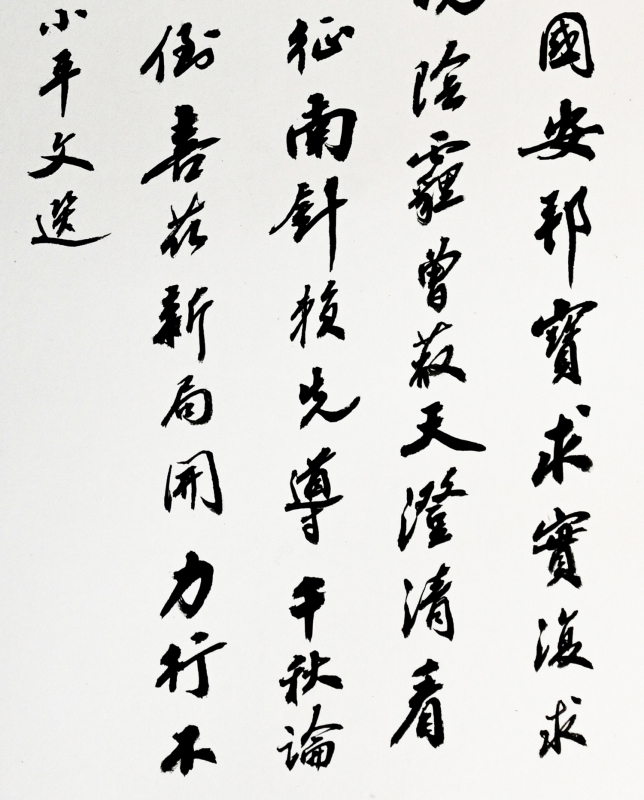 國安邦寶求實復求
陰霾曾蔽天澄清看
征南針賴先導千秋論
倒喜茲新局開力行不
小平文選